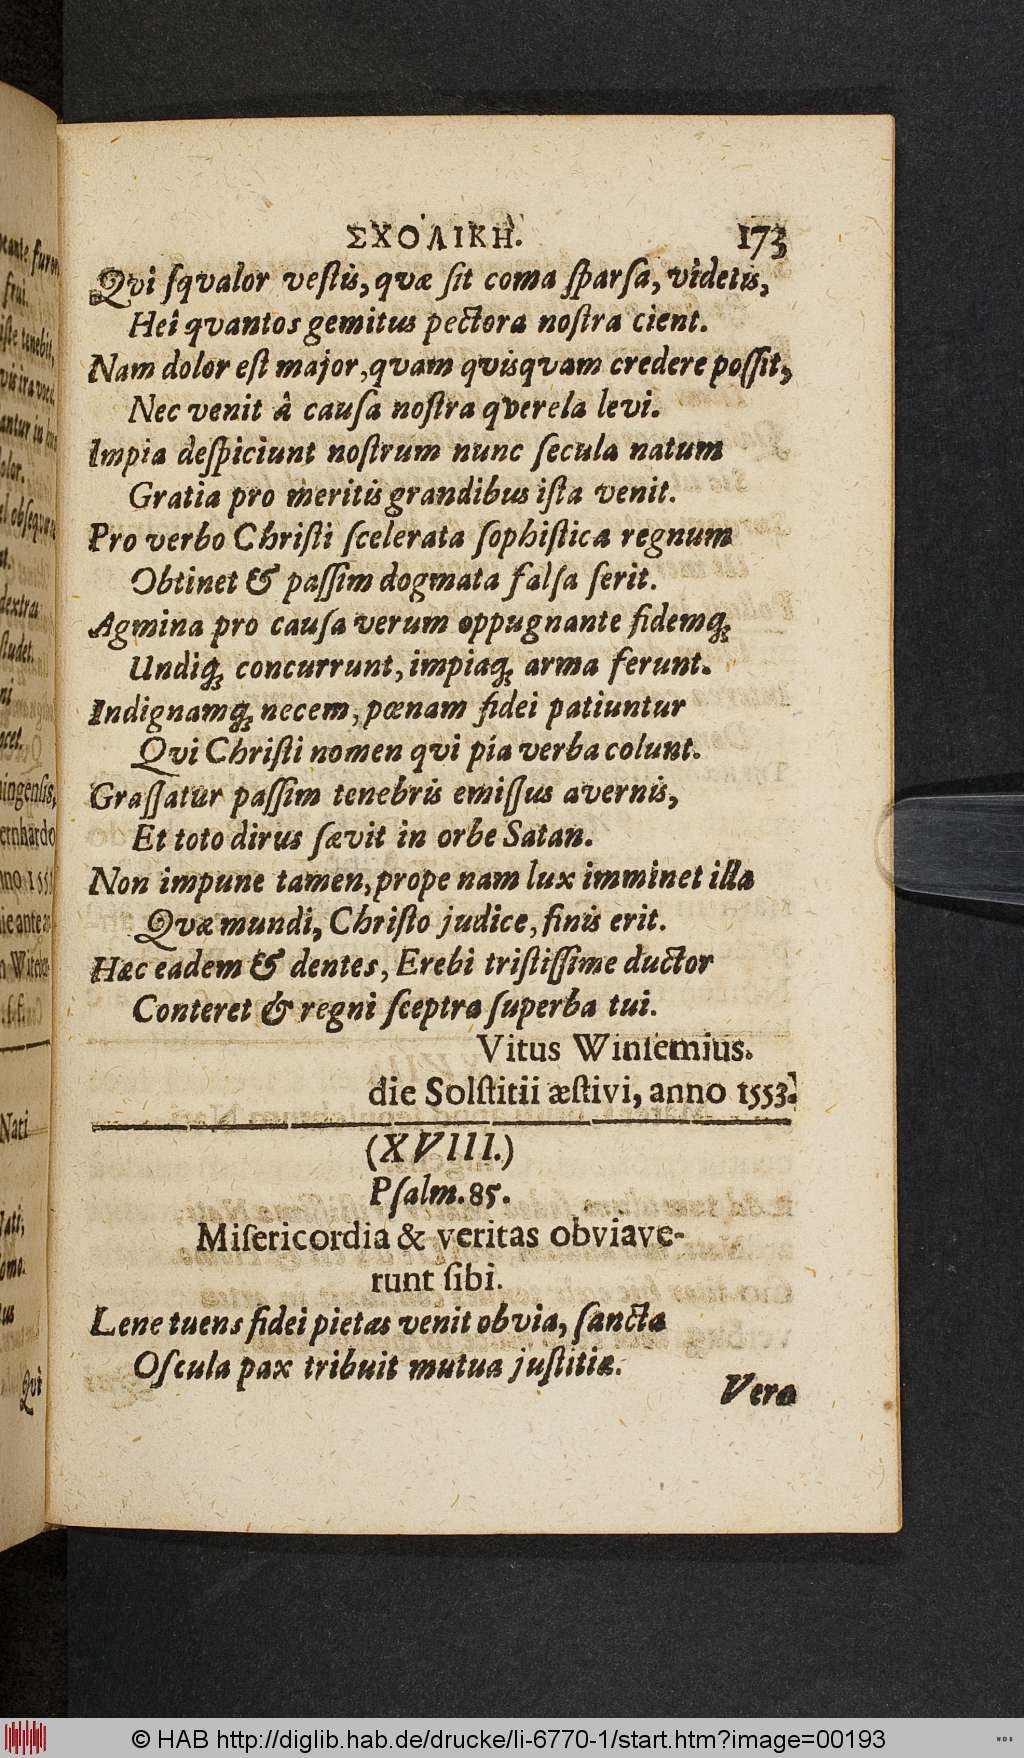 ΣΧΟΛΙΚΗ. 173
Qvi ſqvalor veſtis, qvæ ſit coma ſparſa, videtis,
Hei qvantos gemitus pectora noſtra cient.
Nam dolor eſt major, qvam qvisqvam credere poſſit,
Nec venit â cauſa noſtra qverela levi.
Impia deſpiciunt noſtrum nunc ſecula natum
Gratia pro meritis grandibus iſta venit.
Pro verbo Chriſti ſcelerata ſophiſtica regnum
Obtinet & paſſim dogmata falſa ſerit.
Agmina pro cauſa verum oppugnante fidemq;
Undiq; concurrunt, impiaq; arma ferunt.
Indignamq; necem, pœnam fidei patiuntur
Qvi Chriſti nomen qvi pia verba colunt.
Graſſatur paſſim tenebris emiſſus avernis,
Et toto dirus ſævit in orbe Satan.
Non impune tamen, prope nam lux imminet illa
Qvæ mundi, Chriſto judice, finis erit.
Hæc eadem & dentes, Erebi triſtiſſime ductor
Conteret & regni ſceptra ſuperba tui.
Vitus Winſemius.
die Solſtitii æſtivi, anno 1553.
(XVIII.)
Pſalm. 85.
Miſericordia & veritas obviave-
runt ſibi.
Lene tuens fidei pietas venit obvia, ſancta
Oſcula pax tribuit mutua juſtitiæ.
Vera
Nati
Qvi
© HAB http://diglib.hab.de/drucke/li-6770-1/start.htm?image=00193